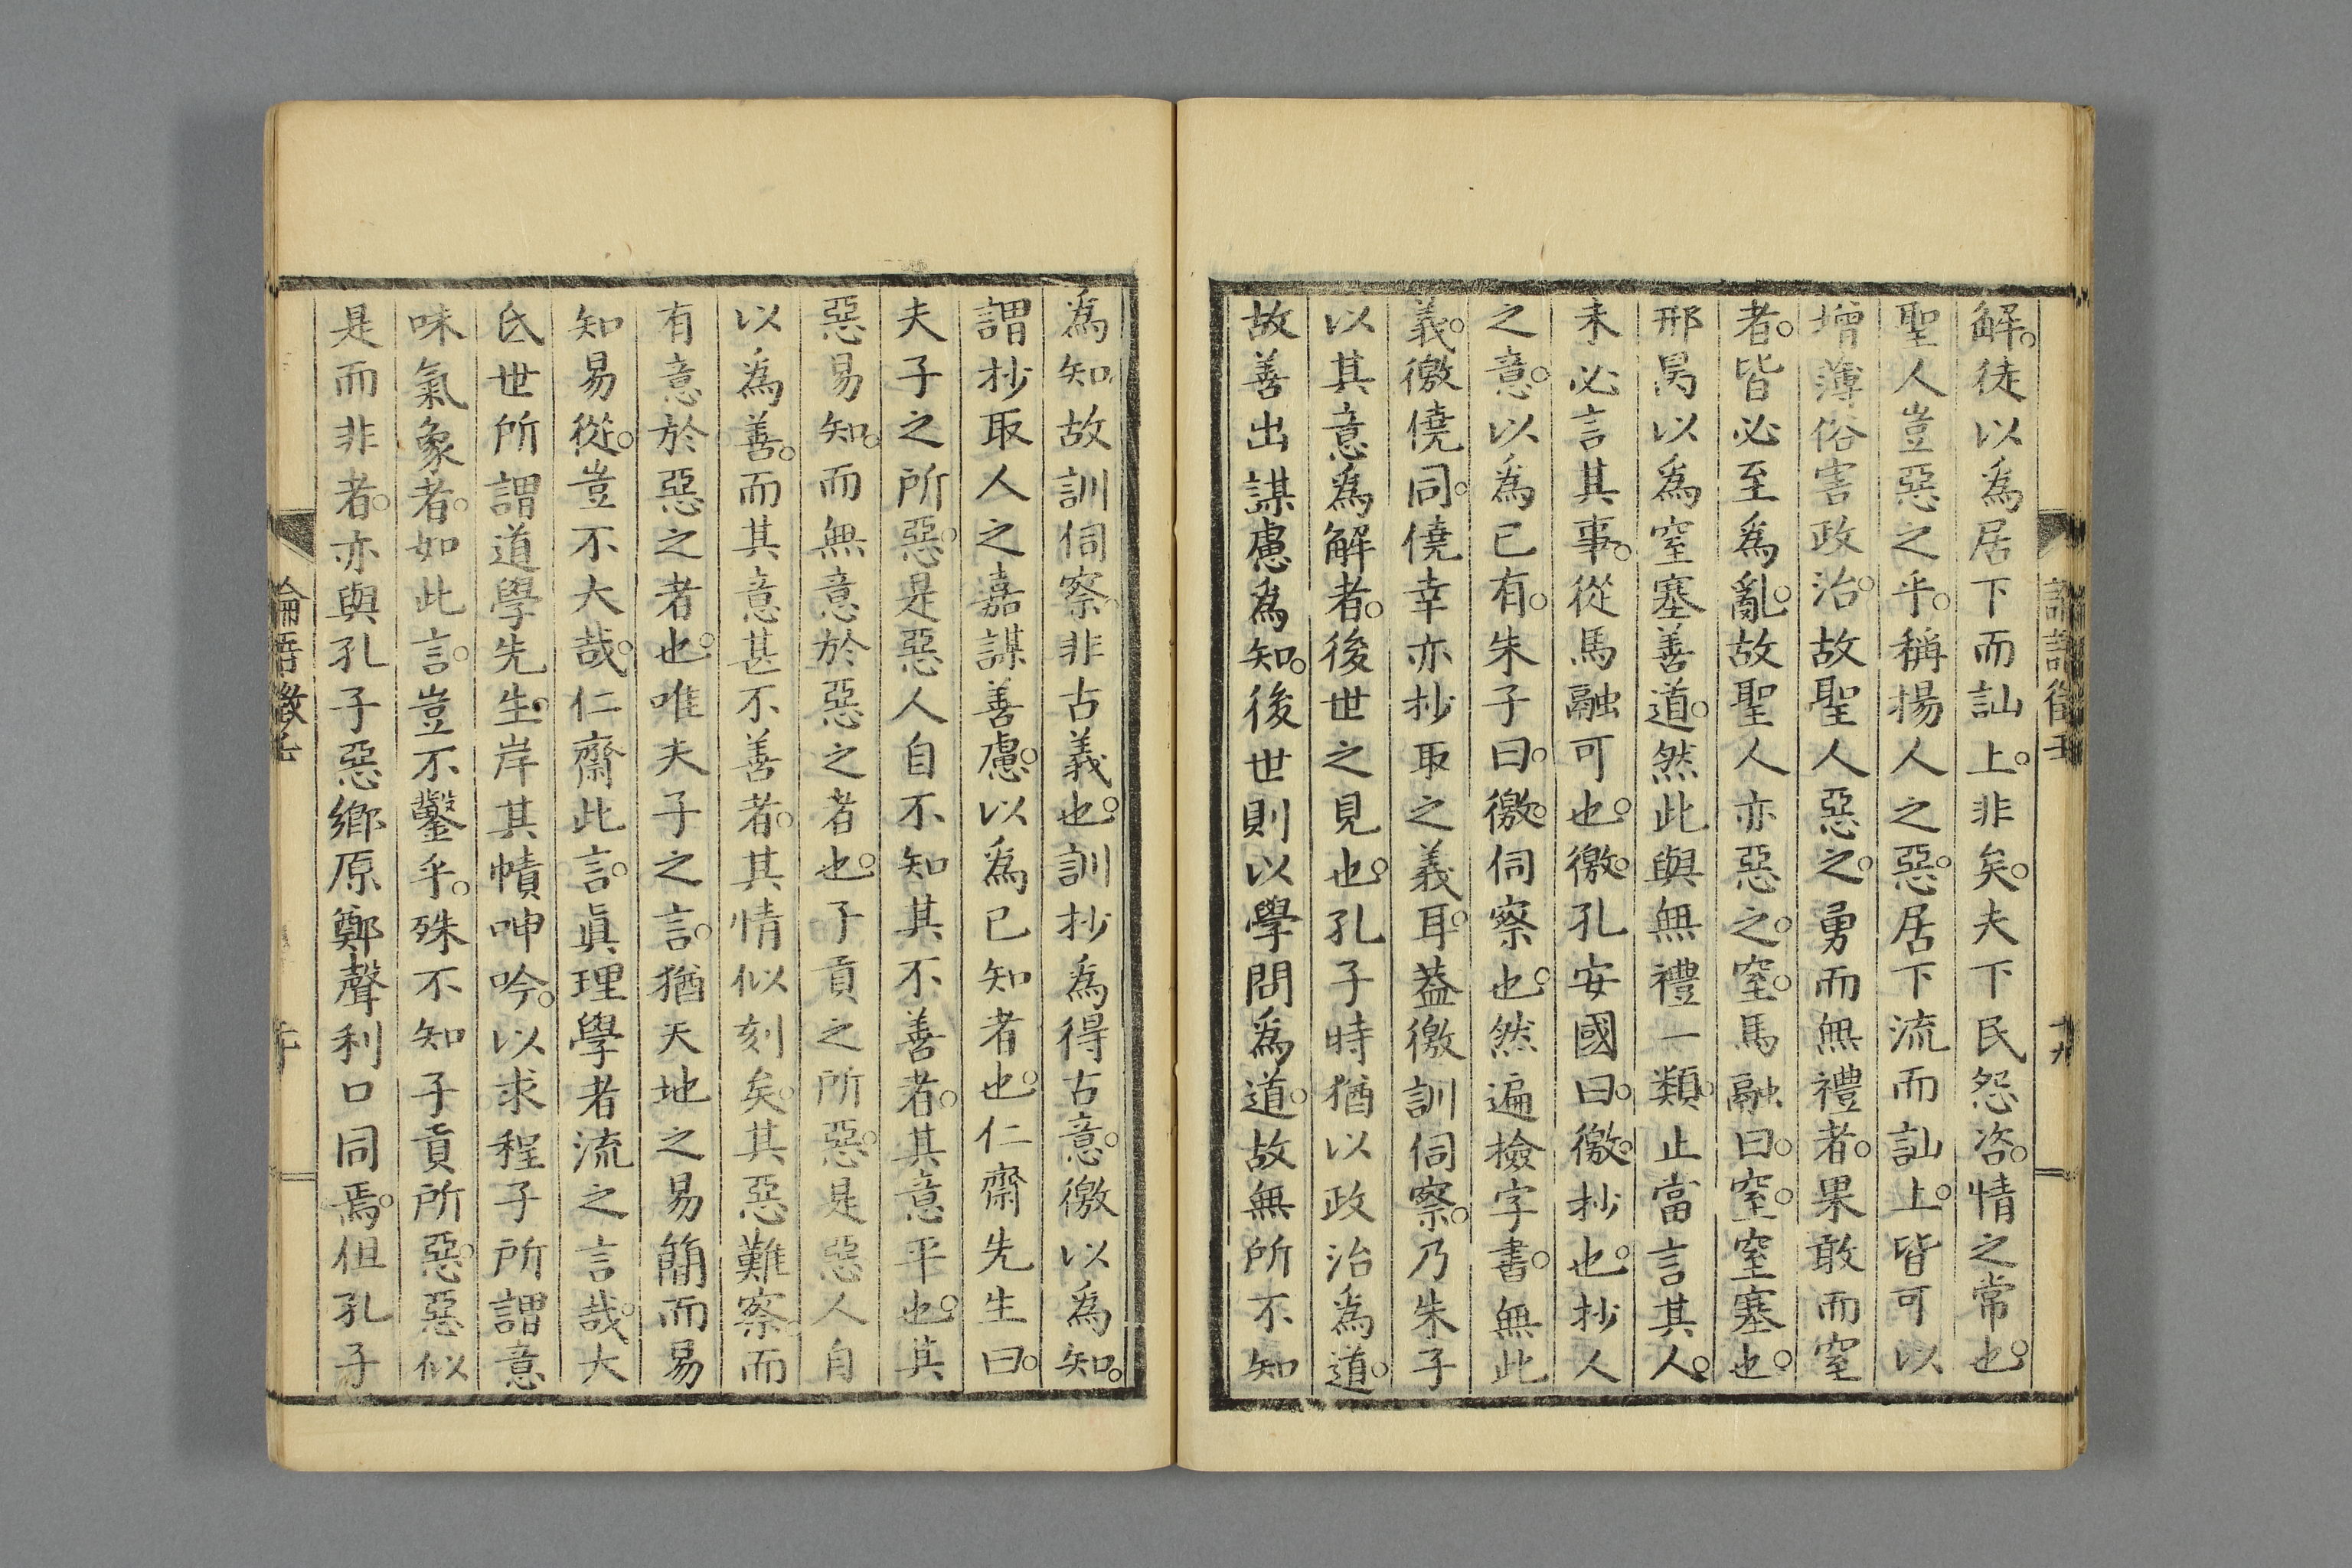 解。徒以爲居下而訕上。非矣。夫下民怨咨。情之常也。
聖人豈惡之乎。稱揚人之惡。居下流而訕上。皆可以
增薄俗害政治。故聖人惡之。勇而無禮者。果敢而窒
者。皆必至爲亂。故聖人亦惡之。窒。馬融曰。窒。窒塞也。
邢昺以爲窒塞善道。然此與無禮一類。止當言其人。
未必言其事。從馬融可也。徼。孔安國曰。徼。抄也。抄人
之意。以爲已有。朱子曰。徼。伺察也。然遍撿字書。無此
義。徼僥同。僥幸亦抄取之義耳。葢徼訓伺察。乃朱子
以其意爲解者。後世之見也。孔子時猶以政治爲道。
故善出謀慮爲知。後世則以學問爲道。故無所不知
論語徵壬
十九
爲知故訓伺察非古義也。訓抄爲得古意。徼以爲知。
謂抄取人之嘉謀善慮。以爲已知者也。仁齋先生曰。
夫子之所惡。是惡人自不知其不善者。其意平也。其
惡易知。而無意於惡之者也。子貢之所惡。是惡人自
以爲善。而其意甚不善者。其情似刻矣。其惡難察。而
有意於惡之者也。唯夫子之言。猶天地之易簡而易
知易從。豈不大哉。仁齋此言。眞理學者流之言哉。大
氐世所謂道學先生。岸其幘呻吟。以求程子所謂意
味氣象者。如此言。豈不鑿乎。殊不知子貢所惡。惡似
是而非者。亦與孔子惡鄉原鄭聲利口同焉。但孔子
論語徵壬
二十